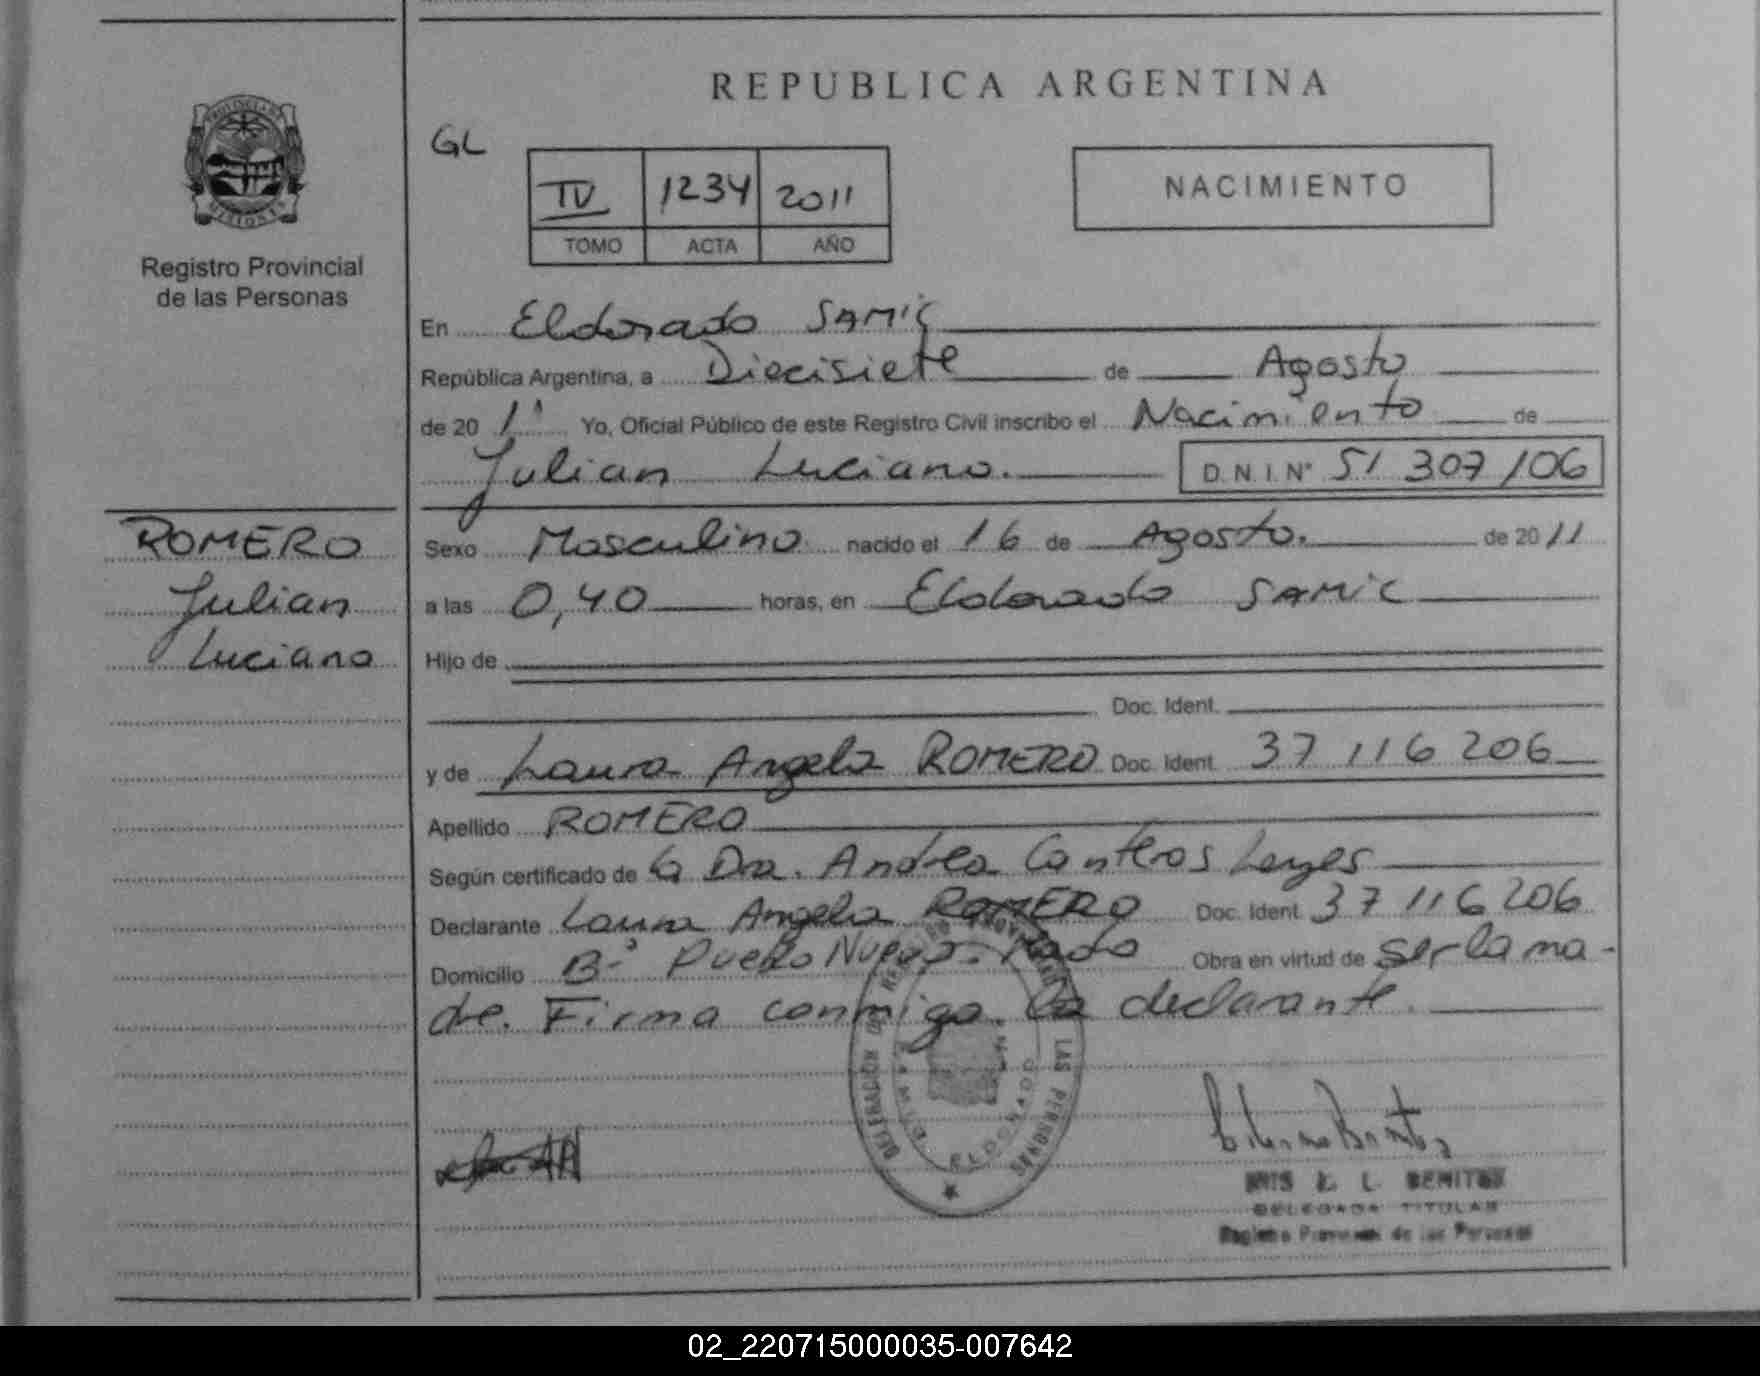 REPUBLICA ARGENTINA
GL
IV 1234 2011
TOMO ACTA AÑO
NACIMIENTO
PROVINCIA DE MISIONES
Registro Provincial
de las Personas
En Eldorado SAMiC
República Argentina, a Diecisiete de Agosto
de 20 11 Yo, Oficial Público de este Registro Civil inscribo el Nacimiento de
Julian Luciano. D.N.I. N° 51 307 106
ROMERO
Julian
Luciano
Sexo Masculino nacido el 16 de Agosto. de 2011
a las 0,40 horas, en Eldorado SAMiC
Hijo de
Doc. Ident.
y de Laura Angela ROMERO Doc. Ident. 37 116 206
Apellido ROMERO
Según certificado de la Dra. Andrea Conteros Leyes
Declarante Laura Angela ROMERO Doc. Ident. 37 116 206
Domicilio Bº Pueblo Nuevo. Obra en virtud de ser la ma-
dre. Firma conmigo la declarante.
DELEGACIÓN DEL REGISTRO PROVINCIAL DE LAS PERSONAS
ELDORADO
L. BENITEZ
DELEGADA TITULAR
Registro Provincial de las Personas
02_220715000035-007642